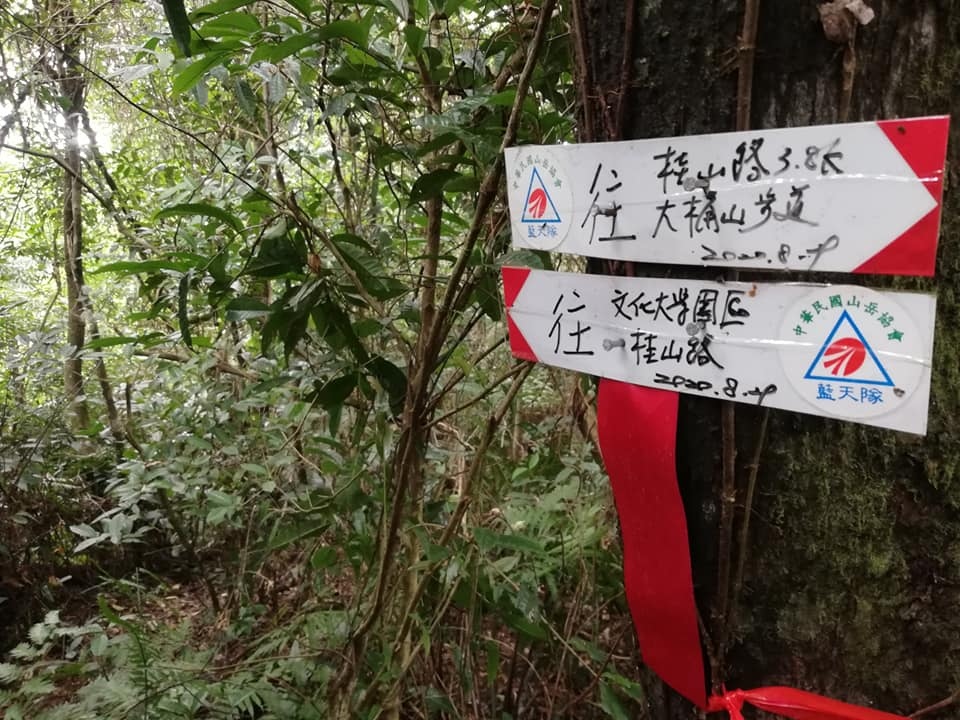 中華民國山岳協會
藍天隊
往
桂山路 3.8k
大桶山步道
2020.8.9
往
文化大学園區
桂山路
2020.8.9
中華民國山岳協會
藍天隊